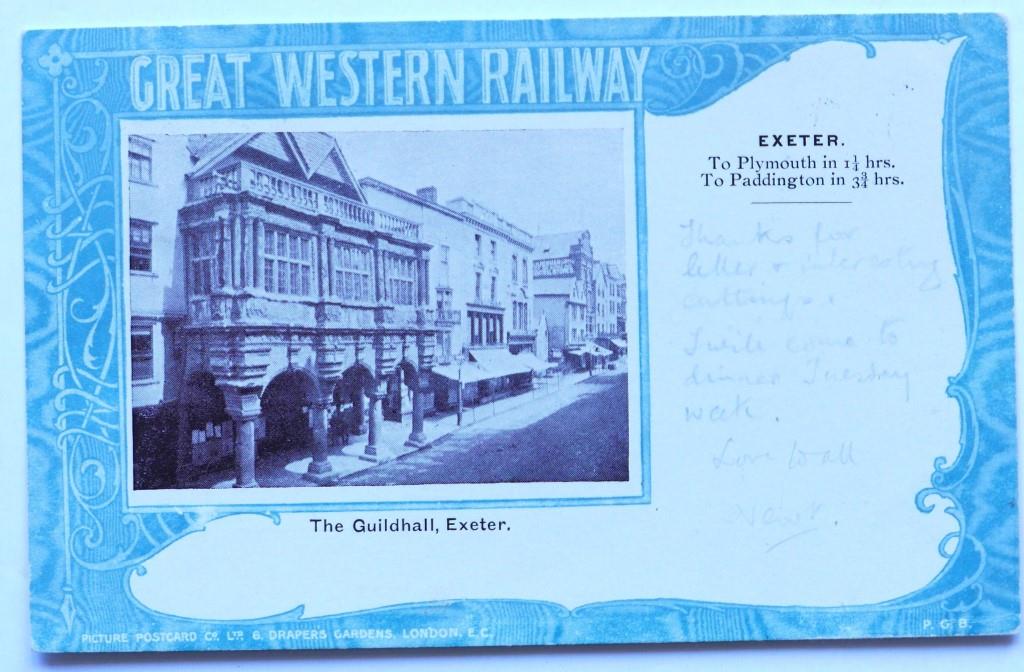 GREAT WESTERN RAILWAY
EXETER.
To Plymouth in 1¼ hrs.
To Paddington in 3¾ hrs.
Thanks for
letter & interesting
cuttings.
I will come to
dinner Tuesday
week.
Love to all
The Guildhall, Exeter.
PICTURE POSTCARD Co. LTD. 6, DRAPERS GARDENS, LONDON, E.C.
P. G. B.